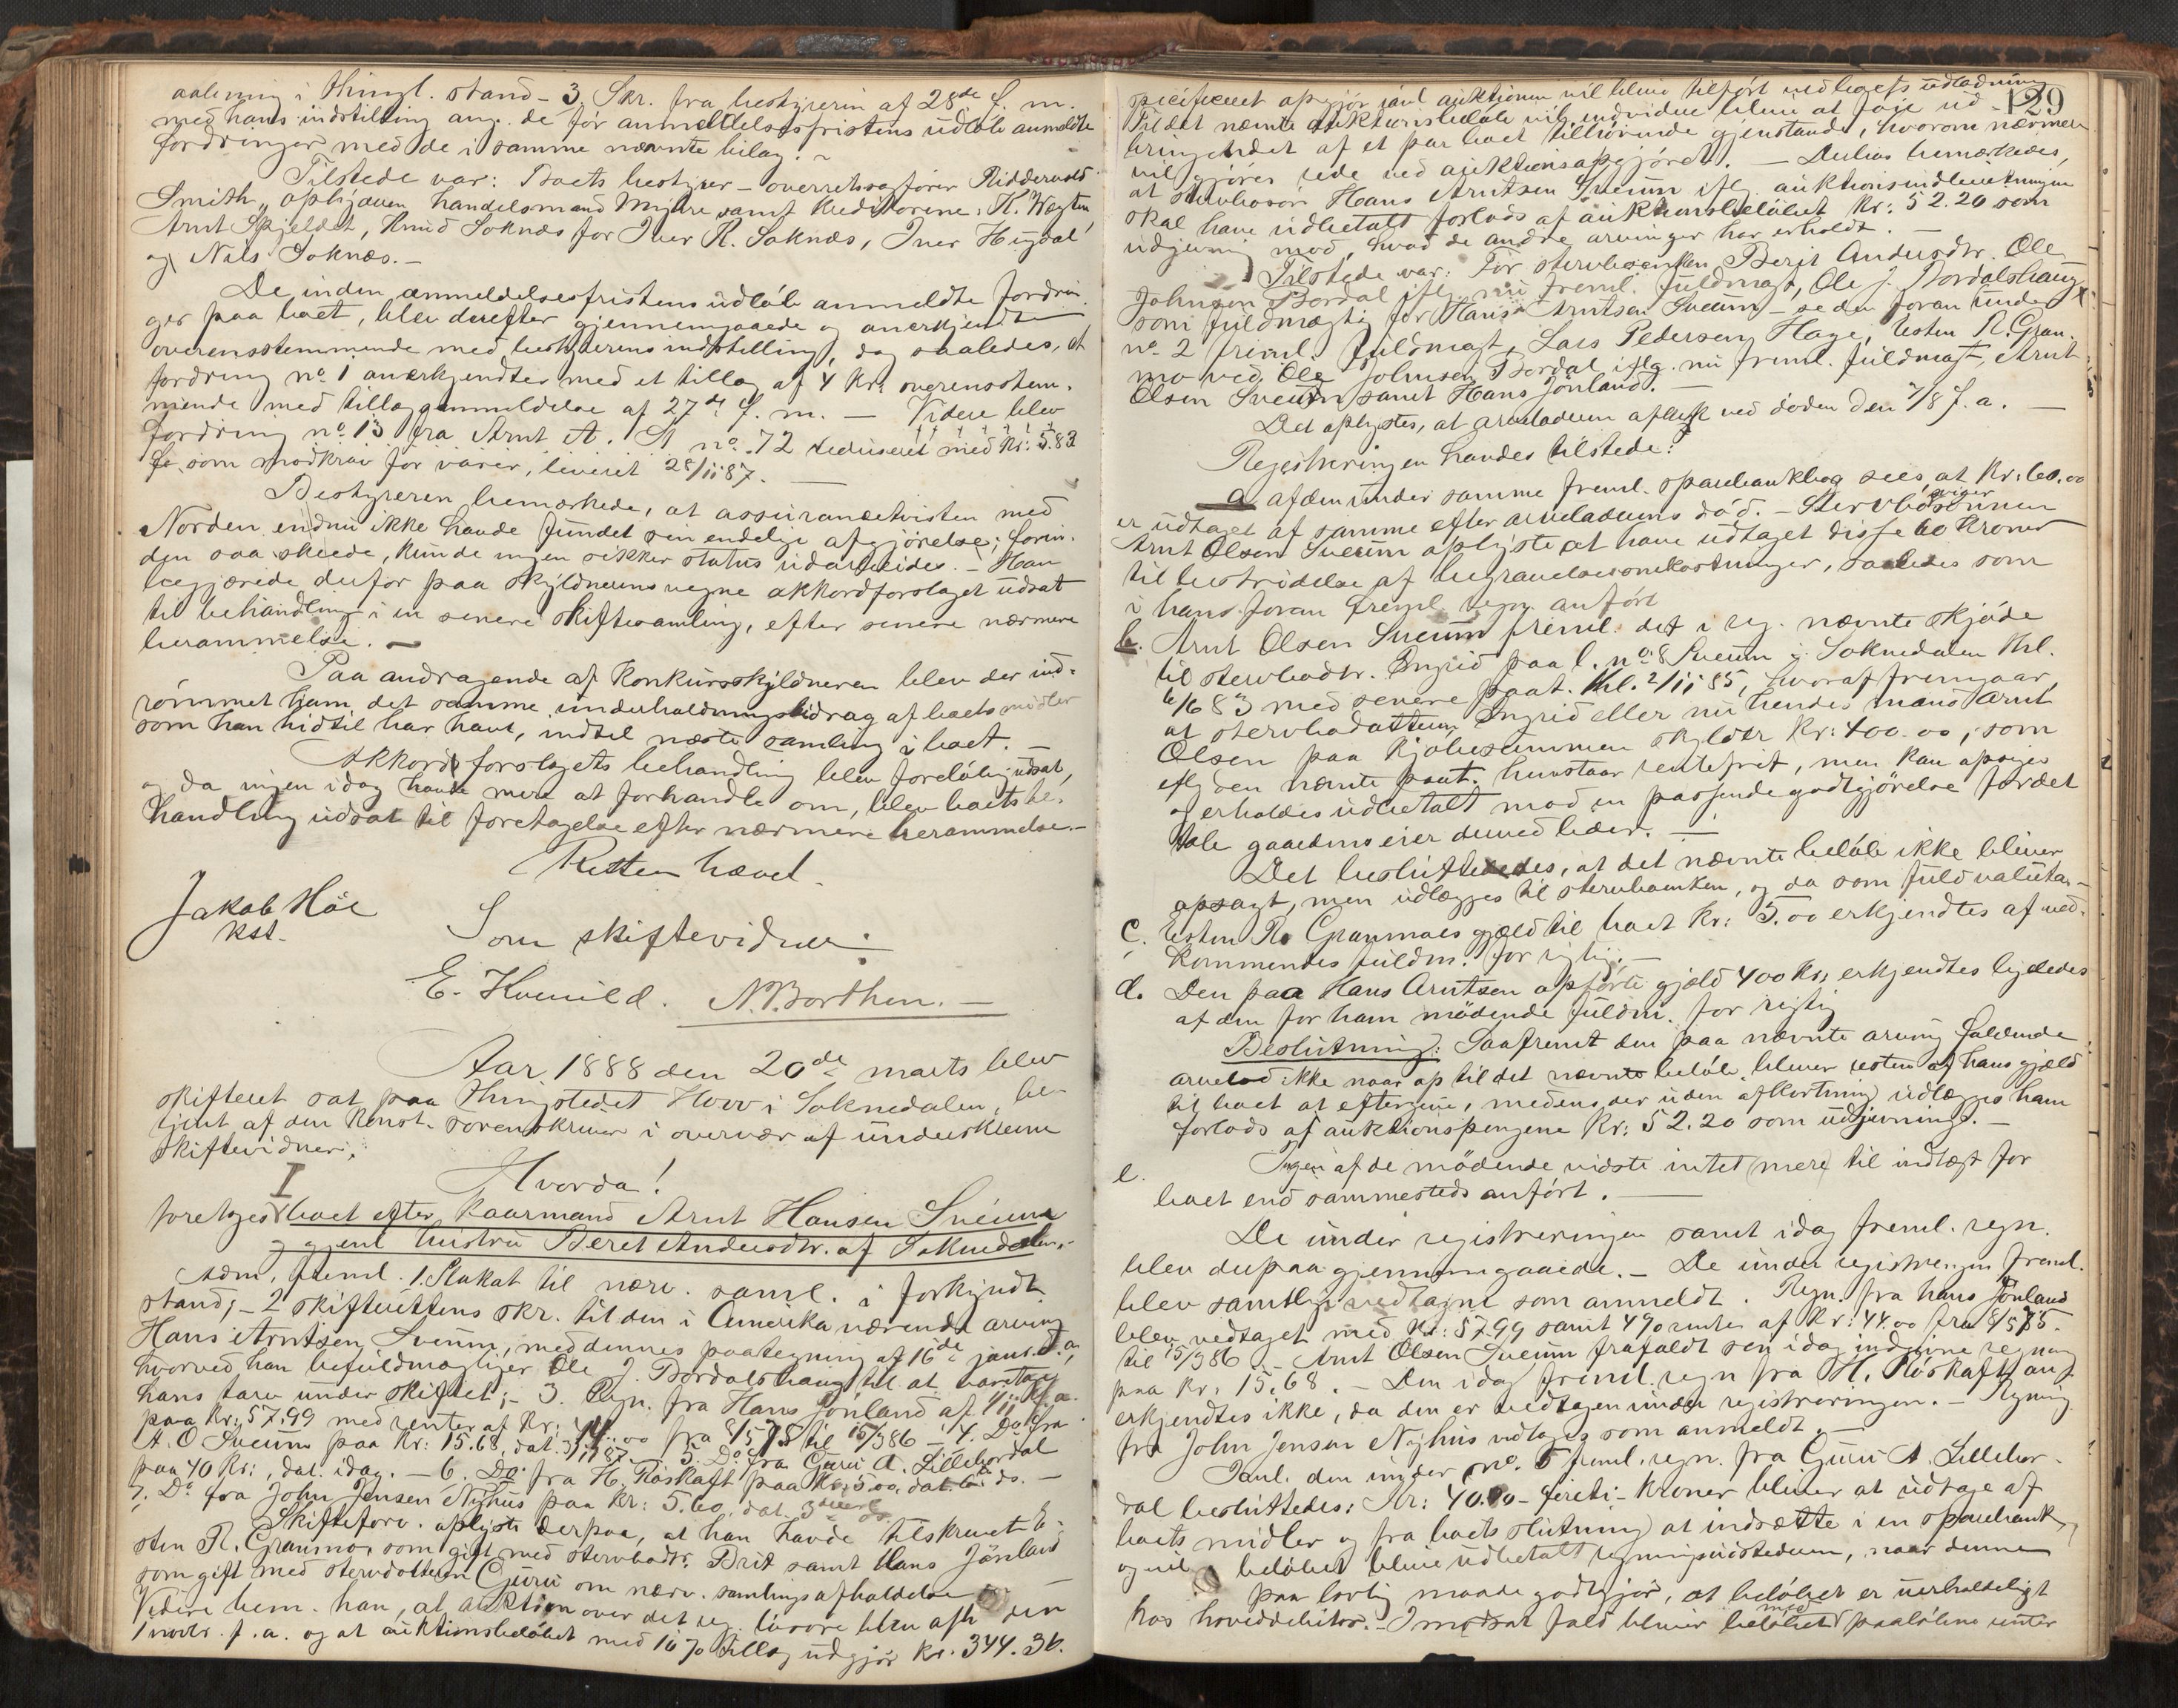 aalening i Thingl. stand – 3 Skr. fra bestyreren af 28de f. m.
med hans indstilling ang. de før anmeldelsesfristens udløb anmeldte
fordringer med de i samme nævnte bilag. –
Tilstede var: Boets bestyrer – overretssagfører Ridderwold
Smith, opbjøven handelsmand Myhre samt kreditorerne: K. Wægten,
Arnt Skjeldet, Knud Soknæs for Iver R. Soknæs, Iver Hugdal
og Nils Soknæs. –
De inden anmeldelsesfristens udløb anmeldte fordrin-
ger paa boet, blev derefter gjennemgaaede og anerkjendte
overensstemmende med bestyrerens indstilling, dog saaledes, at
fordring no. 1 anerkjendtes med et tillæg af 4 Kr. overensstem-
mende med tillægsanmeldelse af 27de f. m. – Videre blev
fordring no. 13 fra Arnt A. St no. 72 reduseret med Kr: 5.83
som modkrav for varer, leveret 28/11 87. –
Bestyreren bemærkede, at assurancetvisten med
Norden endnu ikke havde fundet sin endelige afgjørelse; forin-
den saa skeede, kunde ingen sikker status udarbeides. – Han
begjærede derfor paa skyldnerens vegne akkordforslaget udsat
til behandling i en senere skiftesamling, efter senere nærmere
berammelse. –
Paa andragende af konkursskyldneren blev der ind-
rømmet ham det samme underholdningsbidrag af boets midler
som han hidtil har havt, indtil næste samling i boet. –
Akkordforslagets behandling blev foreløbig udsat,
og da ingen idag havde mere at forhandle om, blev boets be-
handling udsat til foretagelse efter nærmere berammelse. –
Retten hævet.
Jakob Høe
kst.
Som skiftevidner:
E. Hvenild. N. Borthen. –
Aar 1888 den 20de marts blev
skifteret sat paa Thingstedet Hovv i Soknedalen, be-
tjent af den konst. sorenskriver i overvær af underskrevne
skiftevidner,
Hvorda!
I
foretoges boet efter kaarmand Arnt Hansen Sveum
og gjenl. hustru Beret Andersdtr. af Soknedalen. –
Adm. freml. 1. Plakat til nærv. saml. i forkyndt
stand; – 2 skifterettens skr. til den i Amerika værende arving
Hans Arntsen Sveum, med dennes paategning af 16de jan. d. a,
hvorved han befuldmægtiger Ole J. Bordalshaug til at varetage
hans tarv under skiftet; – 3. Regn. fra Hans Jonland af 1/11 f. a.
paa Kr: 57.99 med renter af Kr: 44.00 fra 8/5 78 til 15/3 86 – 4. Do fra
A. O Sveum paa Kr: 15.68, dat. 87. 5. Do fra Guru A. Lillebordal
paa 40 Kr:, dat. idag. – 6. Do fra H. Røskaft paa Kr: 5.00, dat. ds. –
7. Do fra John Jensen Nyhus paa Kr: 5.60, dat. 3
Skifteforv. oplyste derpaa, at han havde tilskrevet E-
sten R. Granmo, som gift med stervbodtr. Brit samt Hans Jönland
som gift med stervdatteren Guru om nærv. samlings afholdelse
Videre bem. han, at auktion over det reg. løsøre blev afh. den
1 novbr. f. a. og at auktionsbeløbet med 10% tillæg udgjør Kr. 344.36.
129
specificeret opgjør saml. auktionen vil blive tilført ved bogets udlodning
Til det nævnte auktionsbeløb vil endvidere blive at føie ud-
bringendet af et par boet tilhørende gjenstande, hvorom nærmere
vil gjøres rede ved auktionsopgjøret. – Derhos bemærkedes,
at stervbosøn Hans Arntsen Sveum iflg. auktionsindberetningen
skal have udbetalt forlods af auktionsbeløbet Kr: 52.20 som
udjevning mod, hvad de andre arvinger har erholdt. –
Tilstede var: For stervboenken Berit Andersdtr. Ole
Johnsen Bordal iflg. nu freml. fuldmagt, Ole J. Bordalshaug
som fuldmægtig for Hans Arntsen Sveum – se den foran under
no. 2 freml. fuldmagt, Lars Pedersen Hage, Esten R. Gran-
mo ved Ole Johnsen Bordal iflg. nu freml. fuldmagt, Arnt
Olsen Sveum samt Hans Jönland. –
Det oplystes, at arveladeren afgik ved døden den 7/8 f. a. –
Registreringen havdes tilstede:
a af den under samme freml. sparebankbog sees, at Kr: 60.00
er udtaget af samme efter arveladerens død. – Stervbosviger sönnen
Arnt Olsen Sveum oplyste at have udtaget disse 60 Kroner
til bestridelse af begravelsesomkostninger, saaledes som
i hans foran freml. regn. anført
b. Arnt Olsen Sveum freml. det i reg. nævnte skjøde
til stervbodtr. Ingrid paa l. no. 8 Sveum i Soknedalen thl.
6/6 83 med senere paat. thl. 2/11 85, hvoraf fremgaar,
at stervbodatteren Ingrid eller nu hendes mand Arnt
Olsen paa kjøbesummen skylder Kr: 400.00, som
iflg den nævnte paat. henstaar rentefrit, men kan opsiges
og erholdes udbetalt mod en passende godtgjørelse for det
tab gaardens eier derved lider. –
Det besluttedes, at det nævnte beløb ikke bliver
opsagt, men udlægges til stervboenken, og da som fuld valuta. –
c. Esten R. Granmoes gjæld til boet Kr: 5.00 erkjendtes af ved-
kommendes fuldm. for rigtig. –
d. Den paa Hans Arntsen opførte gjæld 400 Kr: erkjendtes ligeledes
af den for ham mødende fuldm. for rigtig
Beslutning: Saafremt den paa nævnte arving faldende
arvelod ikke naar op til det nævnte beløb, bliver resten af hans gjæld
til boet at eftergive, medens der uden afkortning udlægges ham
forlods af auktionspengene Kr: 52.20 som udjevning. –
e. Ingen af de mødende vidste intet mere til indtægt for
boet end sammesteds anført. –
De under registreringen samt idag freml. regn.
blev derpaa gjennemgaaede. – De under registreringen freml.
blev samtlige vedtagne som anmeldt. Regn. fra Hans Jönland
blev vedtaget med Kr: 57.99 samt 4% renter af Kr: 44.00 fra 8/5 85
til 15/3 86. – Arnt Olsen Sveum frafaldt sin idag indgivne regning
paa Kr: 15.68. – Den idag freml. regn fra H. Röskaft an-
erkjendtes ikke, da den er vedtagen under registreringen. – Regning
fra John Jensen Nyhus vedtoges som anmeldt. –
Saml. den under no. 5 freml. regn. fra Guru A. Lillebor-
dal besluttedes: Kr: 40.00 – fireti – Kroner bliver at udtage af
boets midler og fra boets slutning at indsætte i en sparebank,
og vil beløbet blive udbetalt regningsudstederen, naar denne
paa lovlig maade godtgjør, at beløbet er uerholdeligt
hos hoveddebitor. – I modsat fald bliver beløbet med paaløbne renter